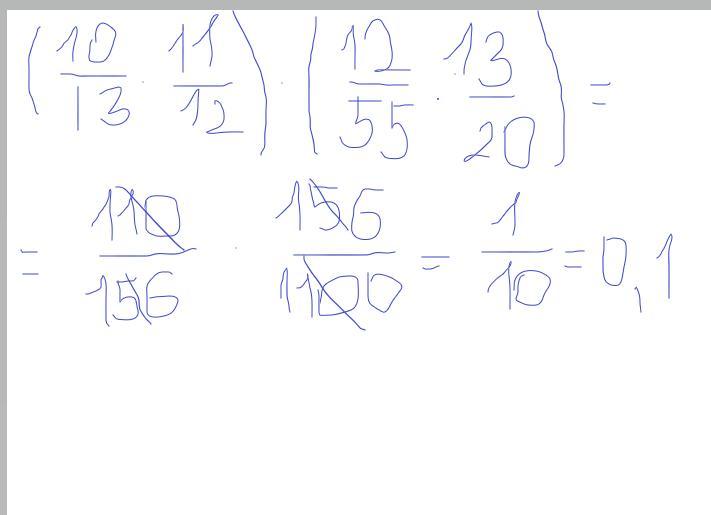 (10/13 · 11/12) · (12/55 · 13/20) =
= 110/156 · 156/1100 = 1/10 = 0,1